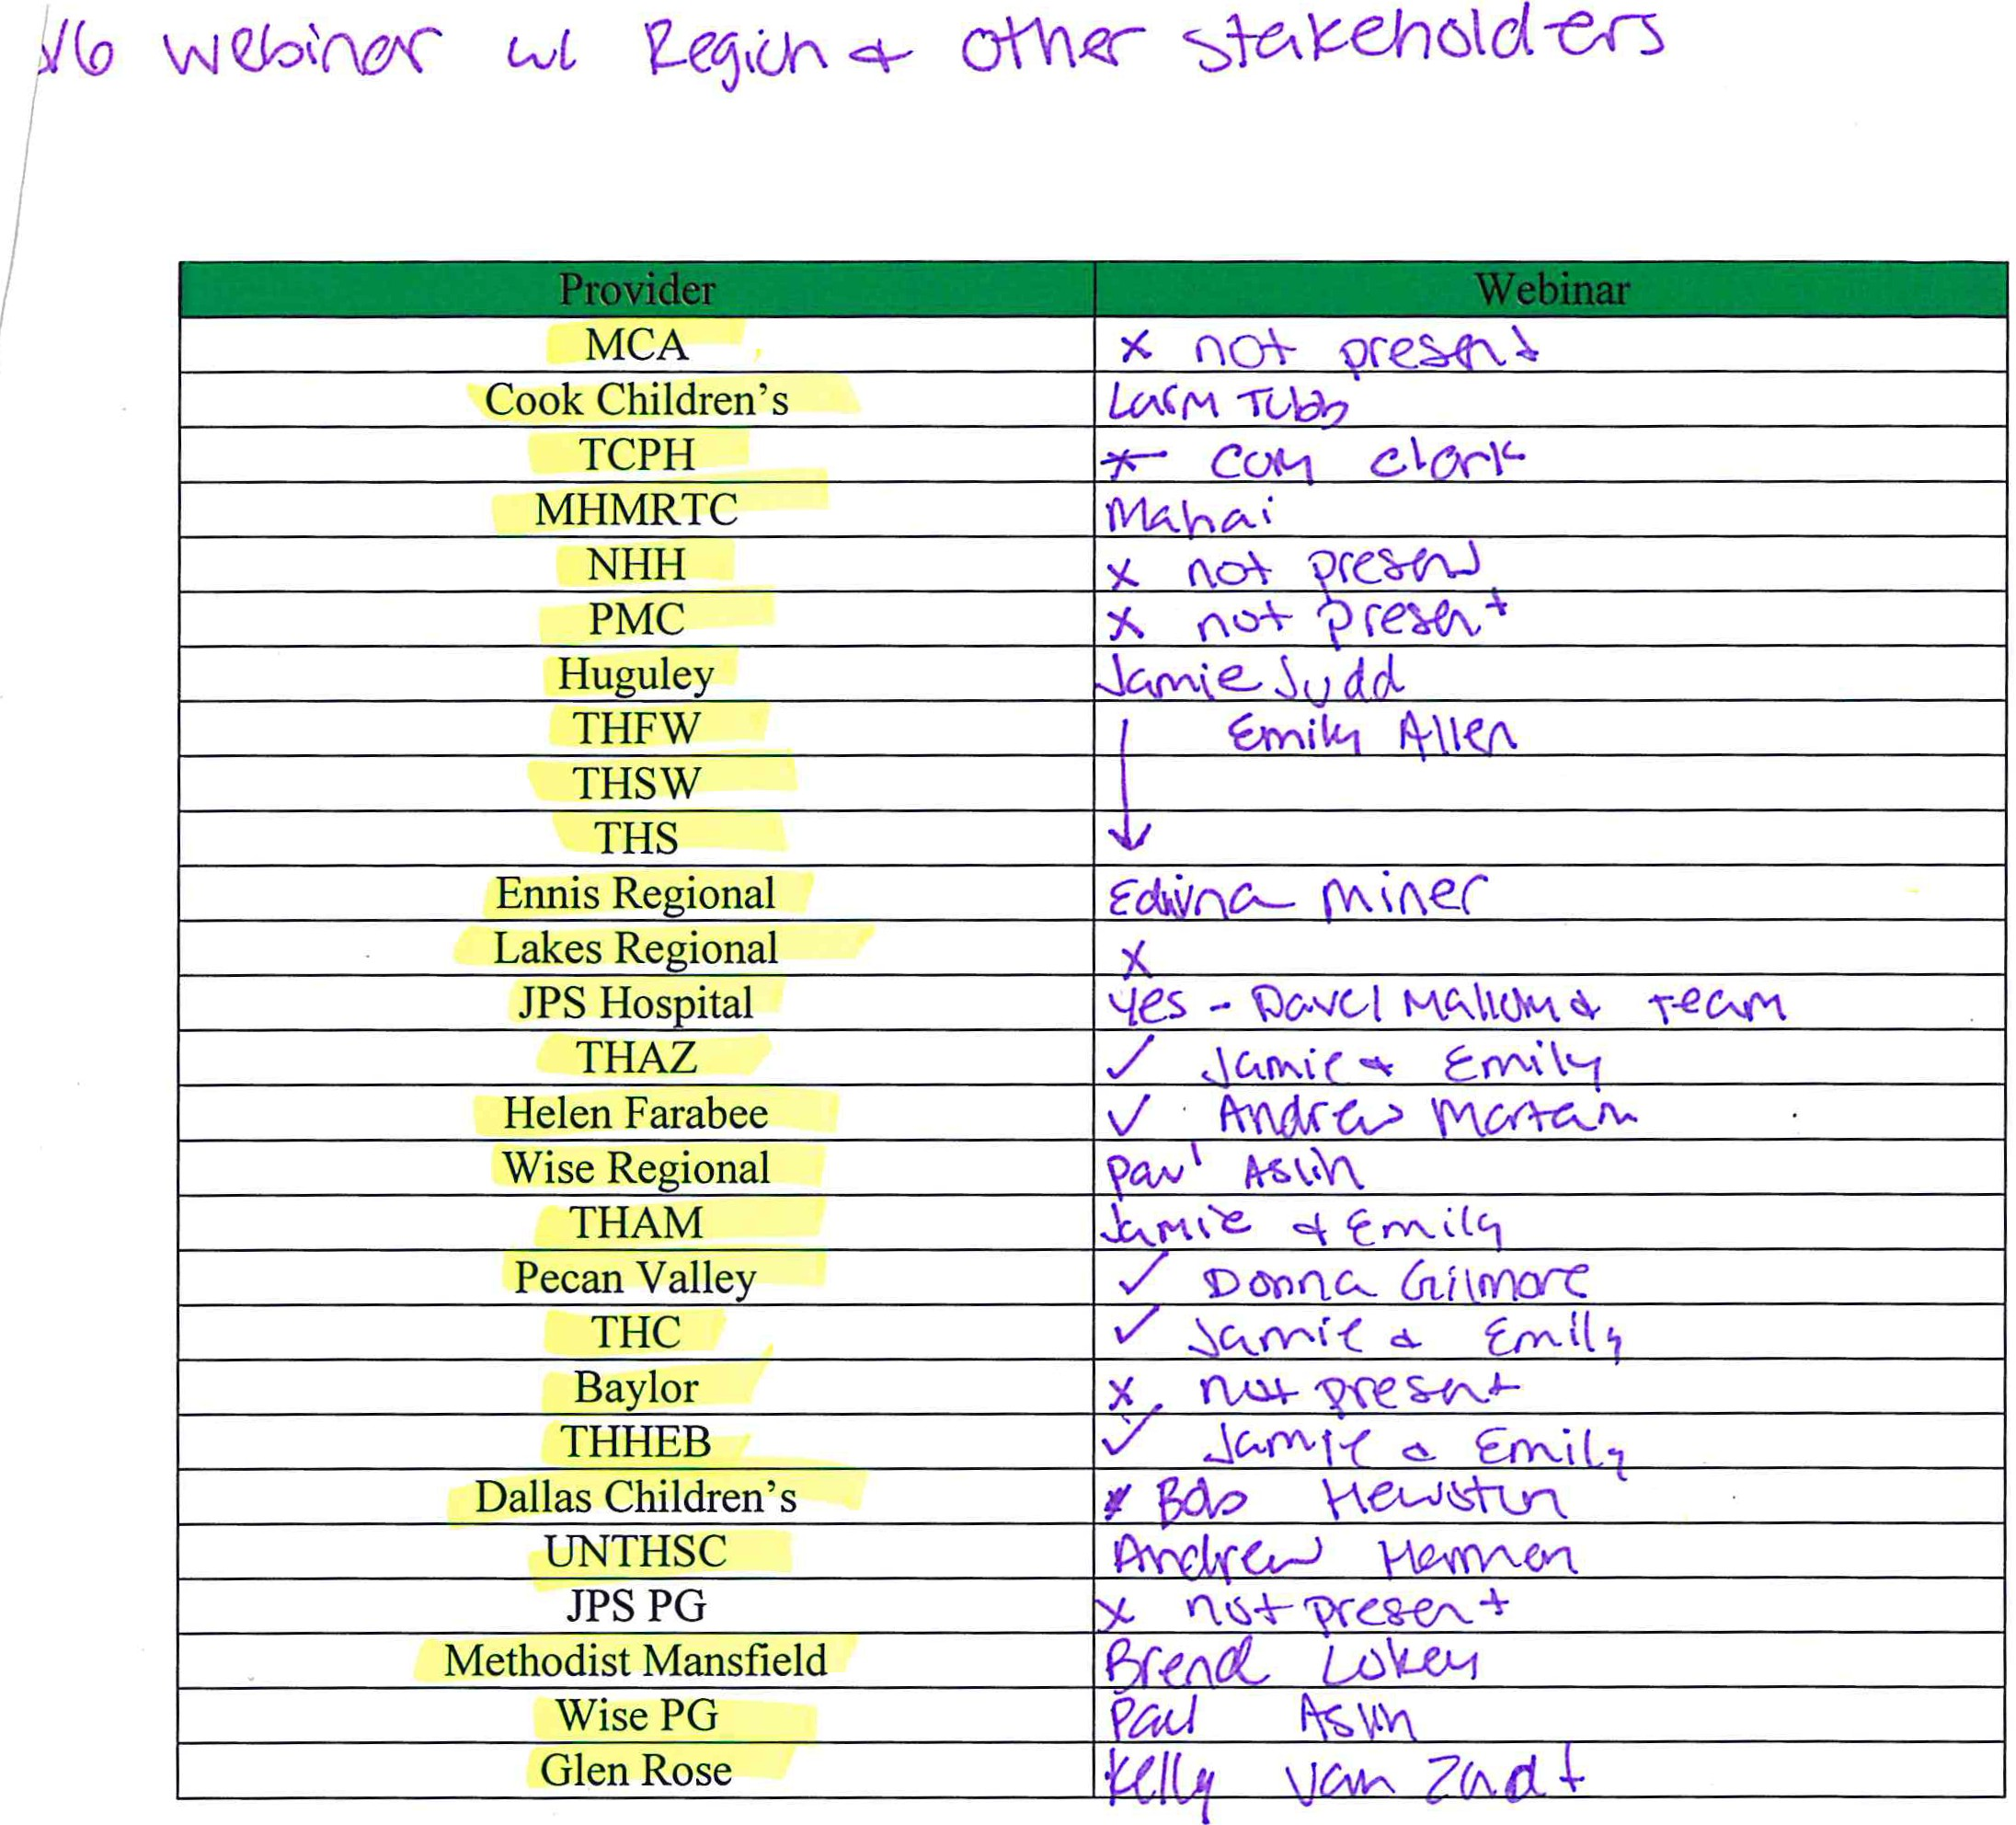 webinar w/ Region & other stakeholders
Provider Webinar
MCA x not present
Cook Children's Tubb
TCPH clark
MHMRTC
NHH x not present
PMC x not present
Huguley Jamie Judd
THFW Emily Allen
THSW
THS
Ennis Regional Edwina Miner
Lakes Regional x
JPS Hospital yes - & team
THAZ ✓ Jamie & Emily
Helen Farabee ✓ Andrew
Wise Regional Paul Aslin
THAM Jamie & Emily
Pecan Valley ✓ Donna Gilmore
THC ✓ Jamie & Emily
Baylor x not present
THHEB ✓ Jamie & Emily
Dallas Children's Bob
UNTHSC Andrew
JPS PG x not present
Methodist Mansfield Lokey
Wise PG Paul Aslin
Glen Rose Kelly Van Zandt